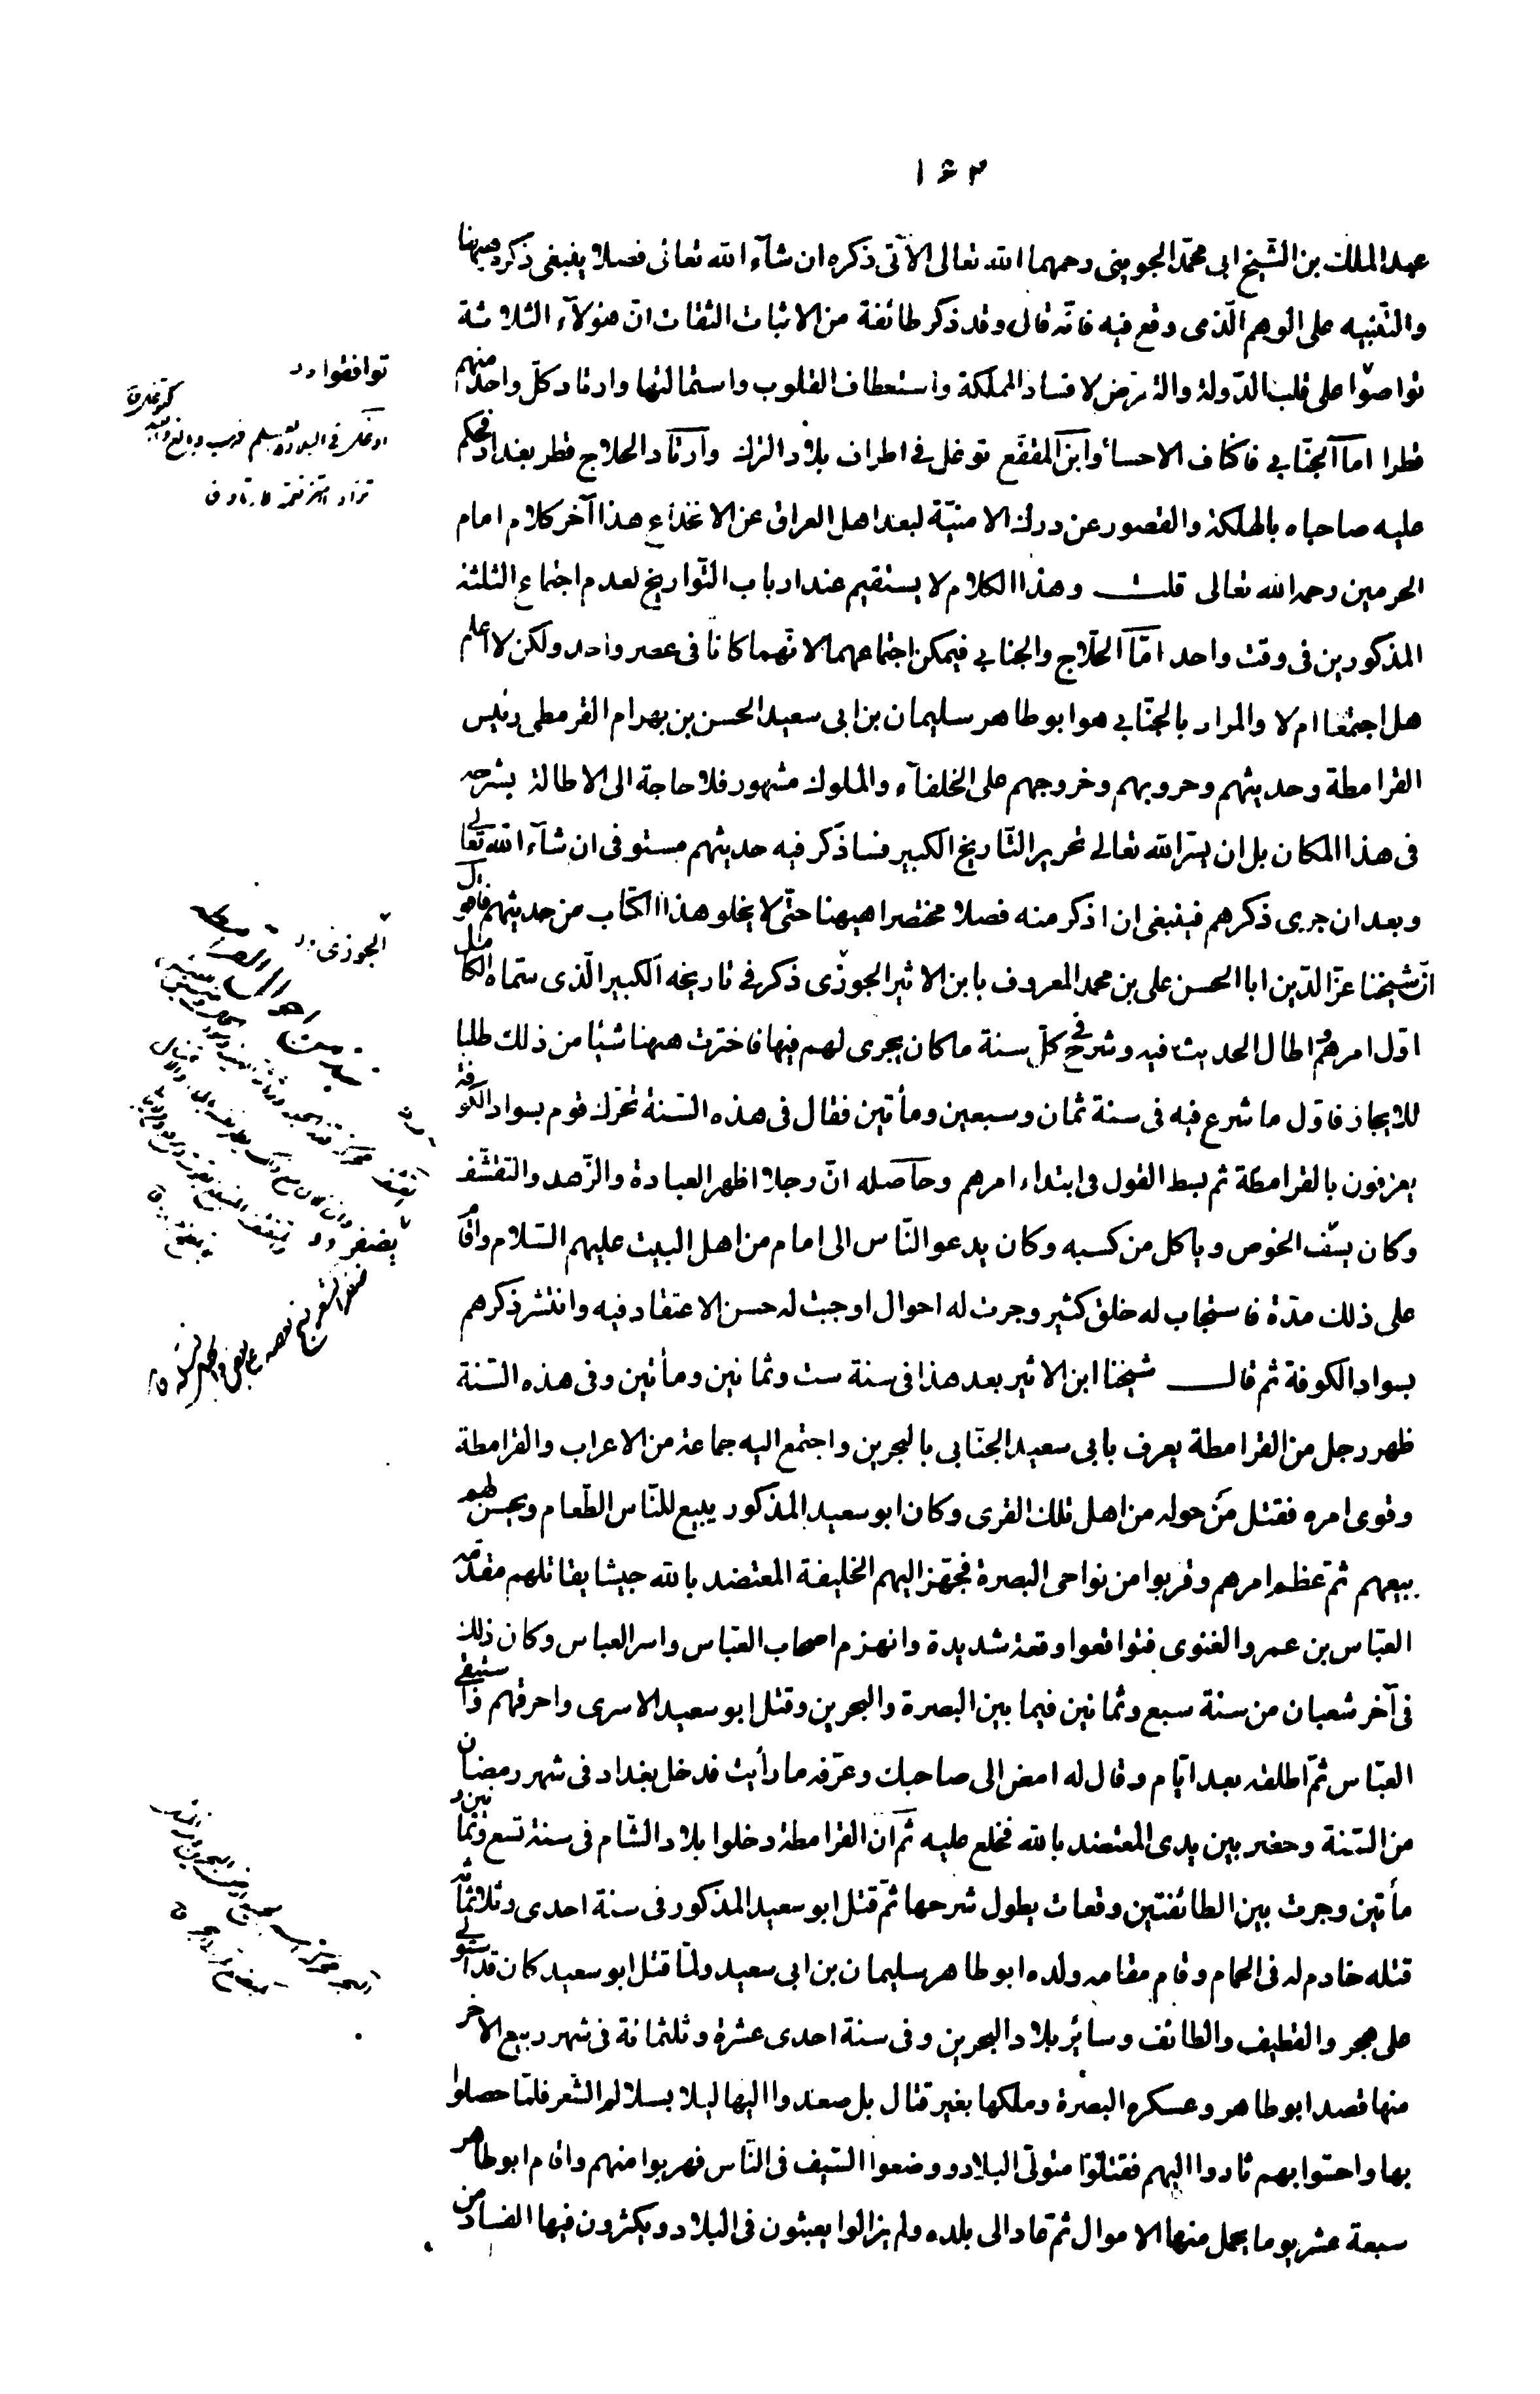 ١٤٢
عبد الملك بن الشيخ ابى محمّد الجوينى رحمهما الله تعالى الآتى ذكره ان شآء الله تعالى فصلا ينبغى ذكره هيهنا
والتنبيه على الوهم الّذى وقع فيه فانّه قال وقد ذكر طائفة من الاثبات الثقات انّ هؤلآء الثلاثة
تواصوا على قلب الدّولة والتعرّض لافساد المملكة واستعطاف القلوب واستمالتها وارتاد كلّ واحد منهم
قطرا امّا الجنّابى فاكناف الاحساْ وابن المقفّع توغل فى اطراف بلاد الترك وارتاد الحلاج قطر بغداد فحكم
عليه صاحباه بالهلكة والقصور عن درك الامنيّة لبعد اهل العراق عن الانخداع هذا آخر كلام امام
الحرمين رحمه الله تعالى قلت وهذا الكلام لا يستقيم عند ارباب التّواريخ لعدم اجتماع الثلثة
المذكورين فى وقت واحد امّا الحلّاج والجنابى فيمكن اجتماعهما لانّهما كانا فى عصر واحد ولكن لا اعلم
هل اجتمعا ام لا والمراد بالجنّابى هو ابو طاهر سليمان بن ابى سعيد الحسن بن بهرام القرمطى رئيس
القرامطة وحديثهم وحروبهم وخروجهم على الخلفآء والملوك مشهور فلا حاجة الى الاطالة بشرحه
فى هذا المكان بل ان يسّر الله تعالى تحرير التّاريخ الكبير فساذكر فيه حديثهم مستوفى ان شآء الله تعالى
وبعد ان جرى ذكرهم فينبغى ان اذكر منه فصلا مختصرا هيهنا حتّى لا يخلو هذا الكتاب من حديثهم فاقول
انّ شيخنا عزّ الدّين ابا الحسن على بن محمد المعروف بابن الاثير الجوزى ذكر فى تاريخه الكبير الّذى سمّاه الكامل
اوّل امرهم واطال الحديث فيه وشرح فى كلّ سنة ما كان يجرى لهم فيها فاخترت ههنا شيئا من ذلك طلبا
للايجاز فاوّل ما شرع فيه فى سنة ثمان وسبعين ومأتين فقال فى هذه السّنة تحرّك قوم بسواد الكوفة
يعرفون بالقرامطة ثم بسط القول فى ابتداء امرهم وحاصله انّ رجلا اظهر العبادة والزّهد والتقشّف
وكان يسفّ الخوص وياكل من كسبه وكان يدعو النّاس الى امام من اهل البيت عليهم السّلام واقام
على ذلك مدّة فاستجاب له خلق كثير وجرت له احوال اوجبت له حسن الاعتقاد فيه وانتشر ذكرهم
بسواد الكوفة ثم قال شيخنا ابن الاثير بعد هذا فى سنة ست وثمانين ومأتين وفى هذه السّنة
ظهر رجل من القرامطة يعرف بابى سعيد الجنّابى بالبحرين واجتمع اليه جماعة من الاعراب والقرامطة
وقوى امره فقتل مَن حوله من اهل تلك القرى وكان ابو سعيد المذكور يبيع للنّاس الطّعام ويحسن لهم
بيعهم ثمّ عظم امرهم وقربوا من نواحى البصرة فجهّز اليهم الخليفة المعتضد بالله جيشا يقاتلهم مقدّمه
العبّاس بن عمرو الغنوى فتواقعوا وقعة شديدة وانهزم اصحاب العبّاس واسر العباس وكان ذلك
فى آخر شعبان من سنة سبع وثمانين فيما بين البصرة والبحرين وقتل ابو سعيد الاسرى واحرقهم واستبقى
العبّاس ثمّ اطلقه بعد ايّام وقال له امض الى صاحبك وعرّفه ما رأيت فدخل بغداد فى شهر رمضان
من السّنة وحضر بين يدى المعتضد بالله فخلع عليه ثم انّ القرامطة دخلوا بلاد الشّام فى سنة تسع وثمانين و
مأتين وجرت بين الطائفتين وقعات يطول شرحها ثمّ قتل ابو سعيد المذكور فى سنة احدى وثلاثمائة
قتله خادم له فى الحمام وقام مقامه ولده ابو طاهر سليمان بن ابى سعيد ولمّا قتل ابو سعيد كان قد استولى
على هجر والقطيف والطائف وسائر بلاد البحرين وفى سنة احدى عشرة وثلثمائة فى شهر ربيع الآخر
منها قصد ابو طاهر وعسكره البصرة وملكها بغير قتال بل صعدوا اليها ليلا بسلالم الشّعر فلمّا حصلوا
بها واحسّوا بهم ثاروا اليهم فقتلوا متولّى البلاد ووضعوا السّيف فى النّاس فهربوا منهم واقام ابو طاهر
سبعة عشر يوما يحمل منها الاموال ثمّ عاد الى بلده ولم يزالوا يعبثون فى البلاد ويكثرون فيها الفساد من
توافقوا
الجوزى
يضفر